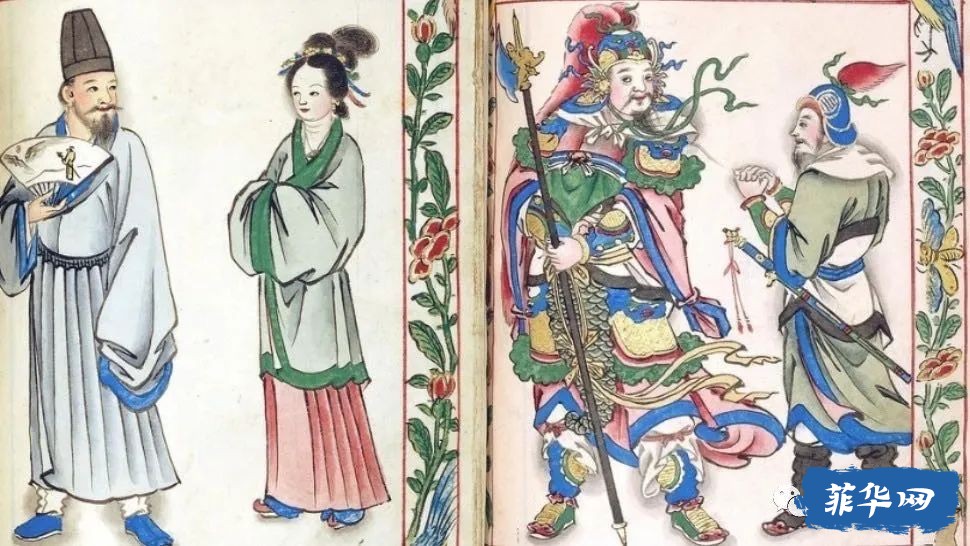 菲华网